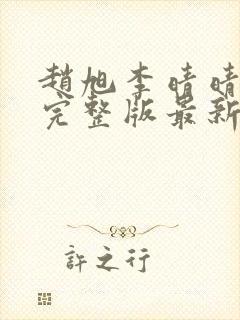 趙旭李晴晴
完整版最新
許之行